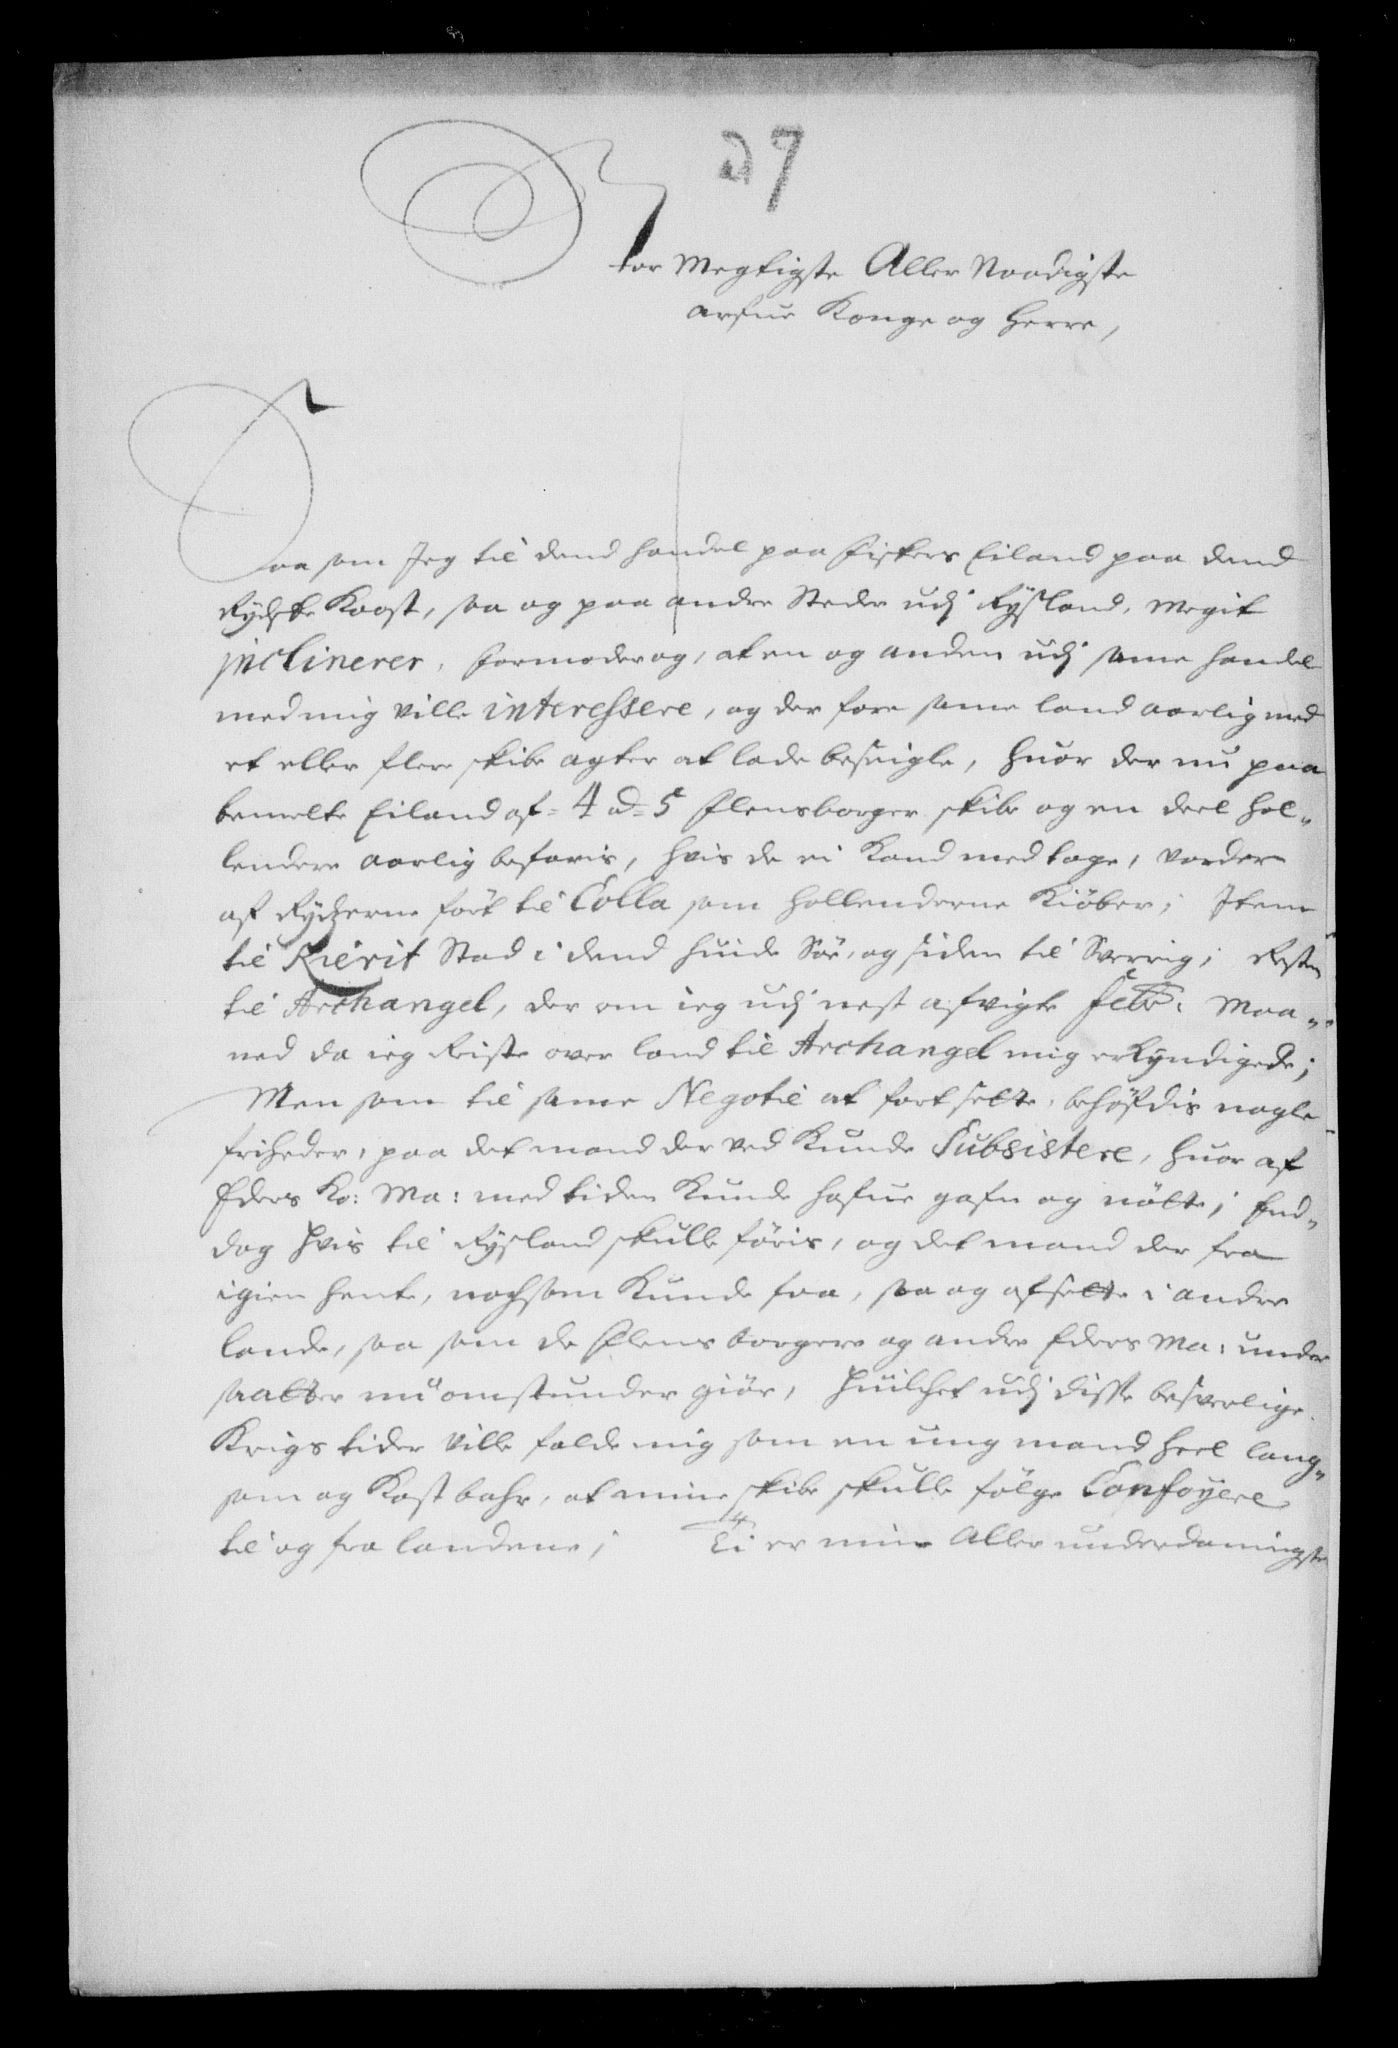 27
Stor Megtigste Aller Naadigste
arfue Konge og Herre,
Saa som Jeg til dend handel paa Fiskers Eiland paa dend
Rydske Koost, saa og paa andre Steder udj Rysland, megit
inclinerer, formoder og, at en og anden udj same handel
med mig ville interessere, og der fore same land aarlig med
et eller flere skibe agter at lade beseigle, huor der nu paa
bemelte Eiland af 4 a 5 Flensborger skibe og en deel hol-
lendere aarlig befaris, hvis de ei Kand medtage, vorder
af Rydzerne fört til Colla som hollenderne Kiöber; Item
til Kierit Stad i dend huide Söe, og siden til Sverrig; Resten
til Archangel, der om ieg udj nest afvigte Febr: Maa-
ned da ieg Reiste over land til Archangel mig erkyndigede;
Men som til same Negotie at fortsette, behöfdis nogle
friheder, paa det mand der ved Kunde Subsistere, huor af
Eders Ko: Ma: med tiden Kunde hafue gafn og nötte; End-
dog hvis til Rysland skulle föris, og det mand der fra
igien hente, nochsom Kunde faa, saa og afsette i andre
lande, saa som de Flensborgere og andre Eders Ma: under
saatter nu omstunder giör, huilchet udj disse besverlige
Krigs tider ville falde mig som en ung mand heel lang-
som og Kostbahr, at mine skibe skulle fölge Confoyere
til og fra landene; Ti er min Aller underdanigste